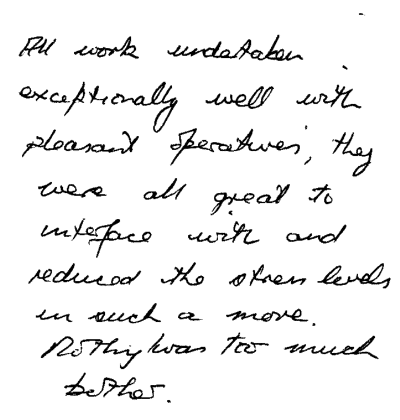 All work undertaken
exceptionally well with
pleasant operatives, they
were all great to
interface with and
reduced the stress levels
in such a move.
Nothing was too much
bother.